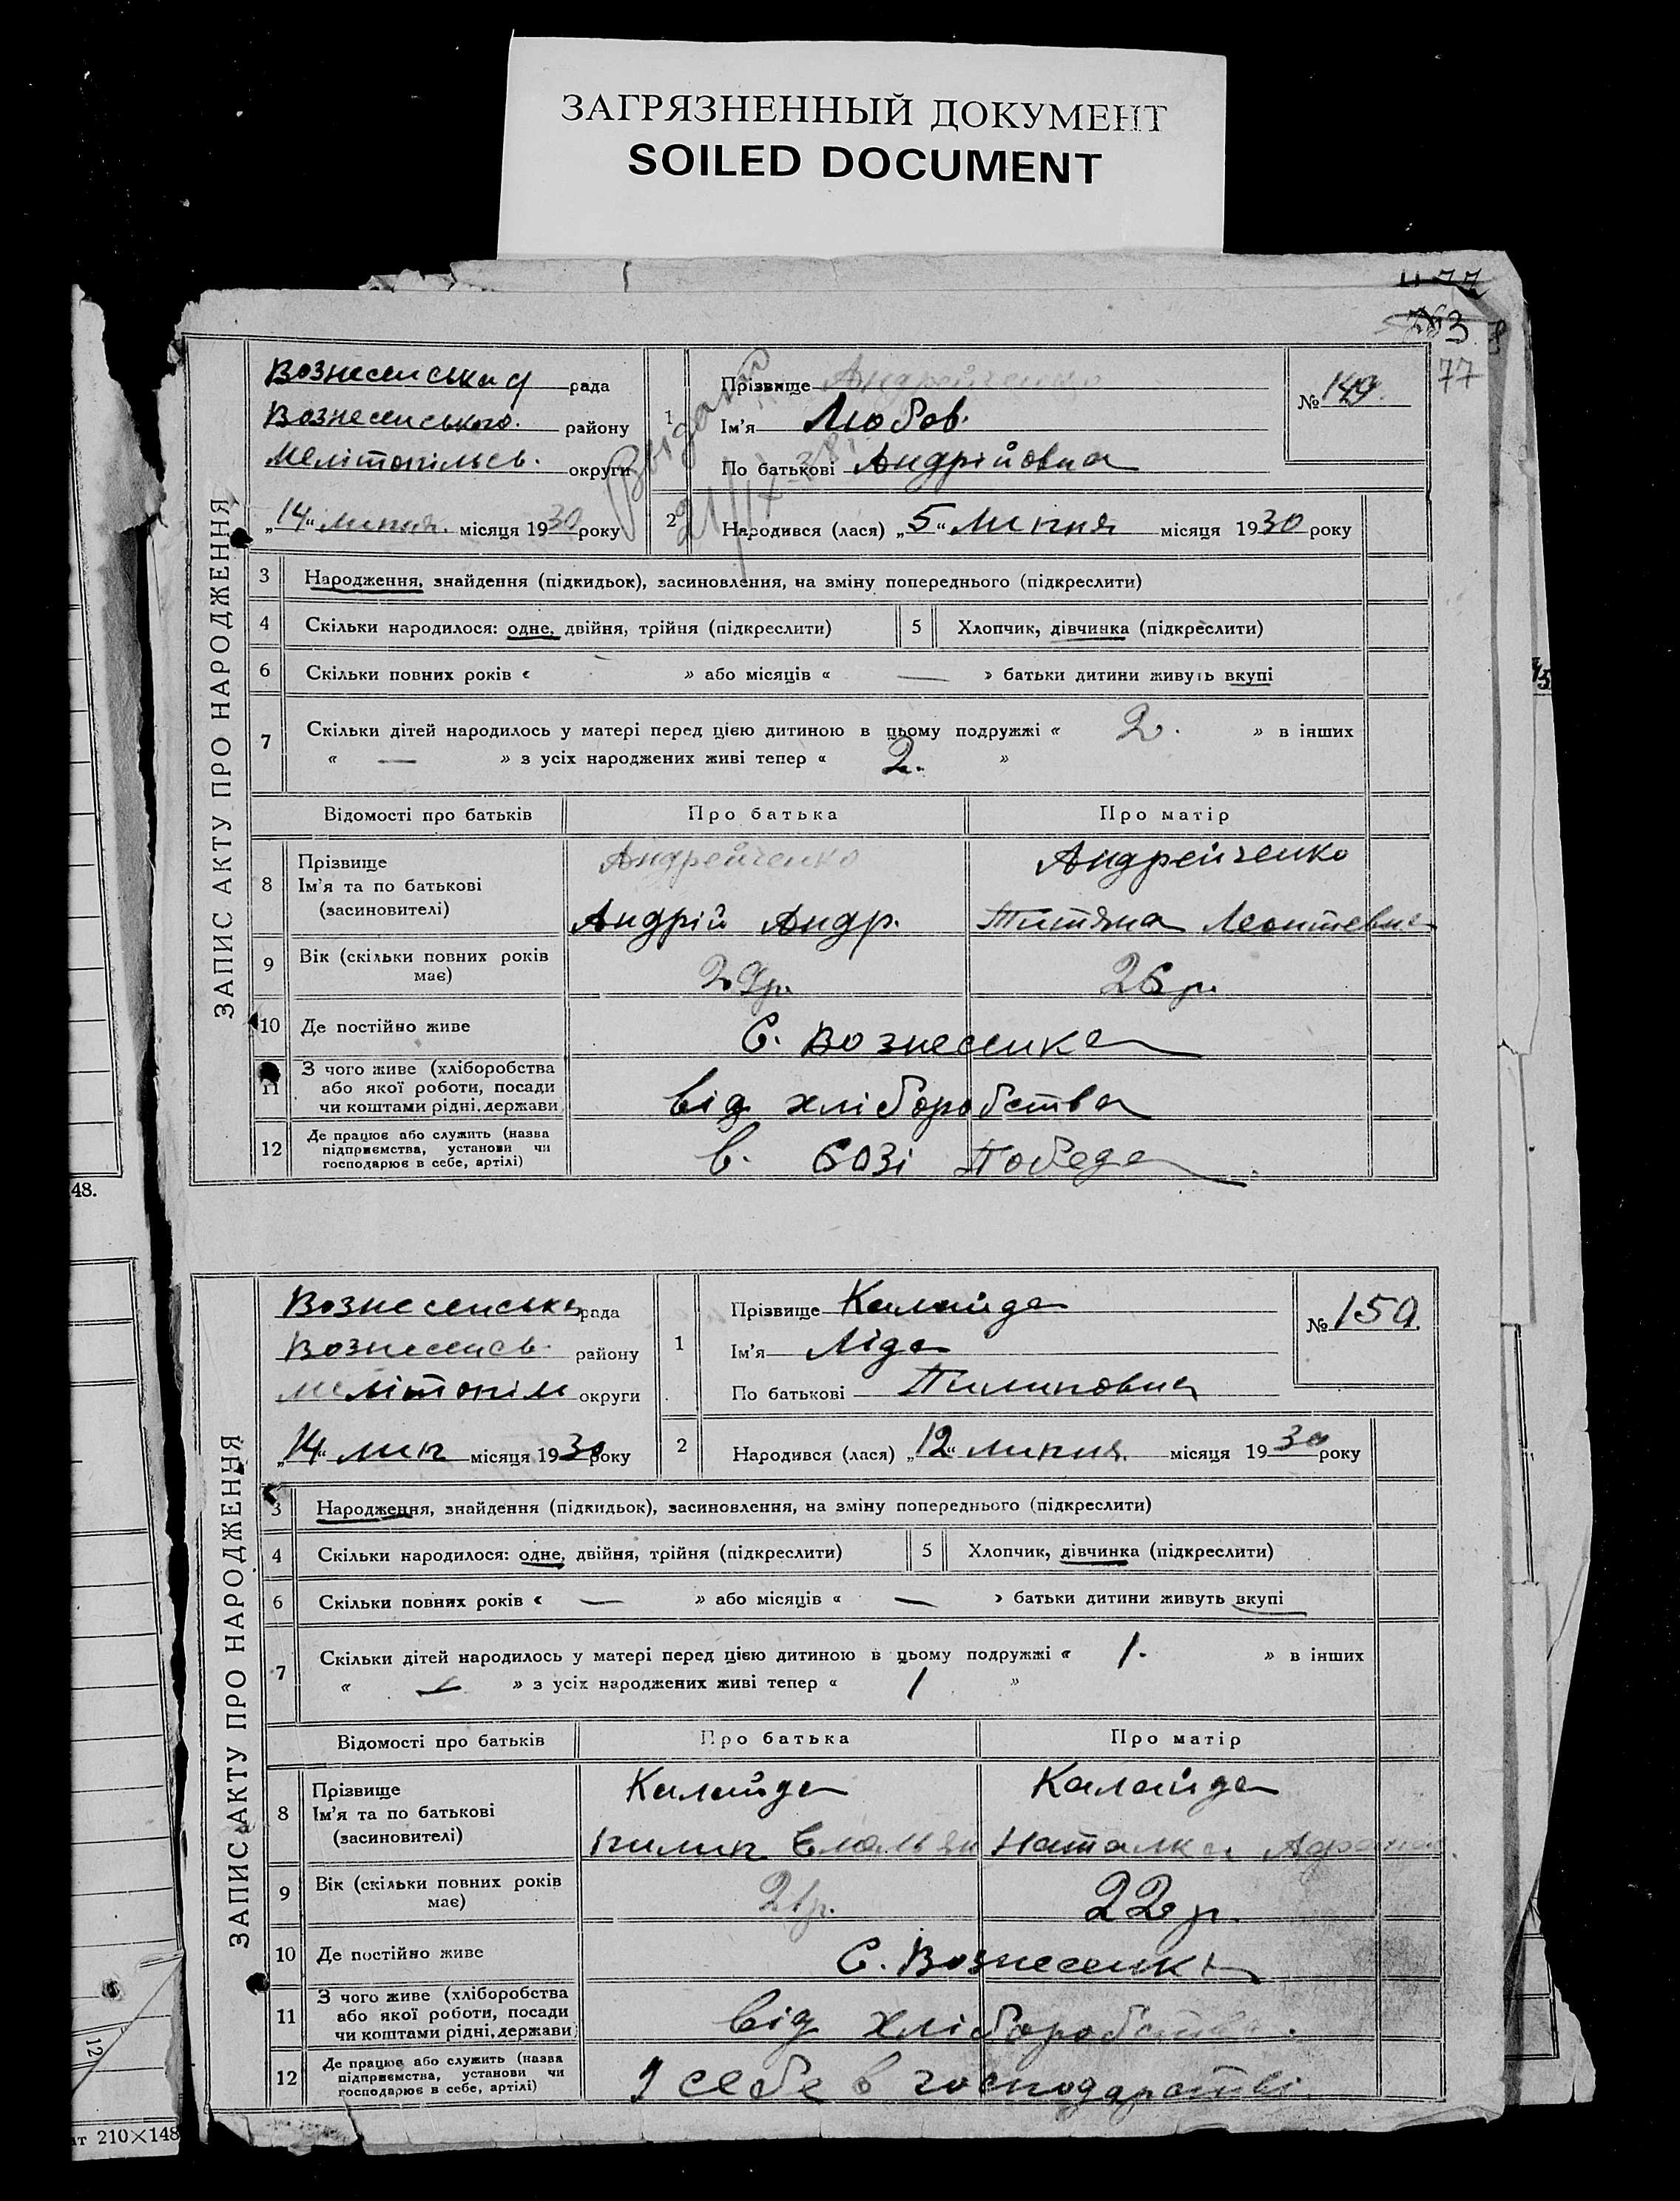 ЗАГРЯЗНЕННЫЙ ДОКУМЕНТ
SOILED DOCUMENT
263
77
ЗАПИС АКТУ ПРО НАРОДЖЕННЯ
Вознесенська рада
Вознесенського. району
Мелітопільсь. округи
„14“ липня. місяця 1930 року
1 Прізвище Андрейченко
Ім'я Любов.
По батькові Андрійовна
№ 149.
2 Народився (лася) „5“ Липня місяця 1930 року
3 Народження, знайдення (підкидьок), засиновлення, на зміну попереднього (підкреслити)
4 Скільки народилося: одне, двійня, трійня (підкреслити) 5 Хлопчик, дівчинка (підкреслити)
6 Скільки повних років « » або місяців « — » батьки дитини живуть вкупі
7 Скільки дітей народилось у матері перед цією дитиною в цьому подружжі « 2. » в інших
« — » з усіх народжених живі тепер « 2. »
Відомості про батьків Про батька Про матір
8 Прізвище Андрейченко Андрейченко
Ім'я та по батькові
(засиновителі) Андрій Андр. Титяна Леонтевна
9 Вік (скільки повних років має) 29р. 26 р.
10 Де постійно живе С. Вознесенка
11 З чого живе (хліборобства
або якої роботи, посади
чи коштами рідні, держави від хліборобства
12 Де працює або служить (назва
підприємства, установи чи
господарює в себе, артілі) в. созі Победа
48.
ЗАПИС АКТУ ПРО НАРОДЖЕННЯ
Вознесенська рада
Вознесенсь. району
Мелітопіл округи
„14“ лип місяця 1930 року
1 Прізвище Калайда
Ім'я Ліда
По батькові Пилиповна
№ 150.
2 Народився (лася) „12“ липня. місяця 1930 року
3 Народження, знайдення (підкидьок), засиновлення, на зміну попереднього (підкреслити)
4 Скільки народилося: одне, двійня, трійня (підкреслити) 5 Хлопчик, дівчинка (підкреслити)
6 Скільки повних років « — » або місяців « — » батьки дитини живуть вкупі
7 Скільки дітей народилось у матері перед цією дитиною в цьому подружжі « 1. » в інших
« — » з усіх народжених живі тепер « 1 »
Відомості про батьків Про батька Про матір
8 Прізвище Калайда Калайда
Ім'я та по батькові
(засиновителі) Пилип Емальян Наталка
9 Вік (скільки повних років має) 21р. 22 р.
10 Де постійно живе С. Вознесенка
11 З чого живе (хліборобства
або якої роботи, посади
чи коштами рідні, держави від хліборобства.
12 Де працює або служить (назва
підприємства, установи чи
господарює в себе, артілі) У себе в господарстві
12
ат 210×148